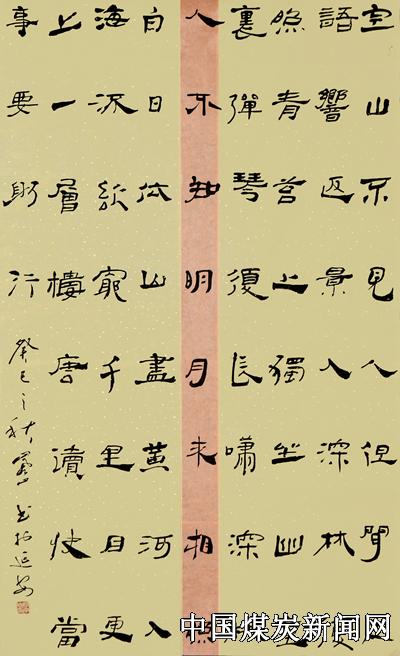 空山不見人但聞人
語響返景入深林復
照青苔上獨坐幽
裏彈琴復長嘯深
人不知明月來相照
白日依山盡黄河入
海流欲窮千里目更
上一層樓唐讀快當
事要躬行
癸巳之秋書於延安
中国煤炭新闻网